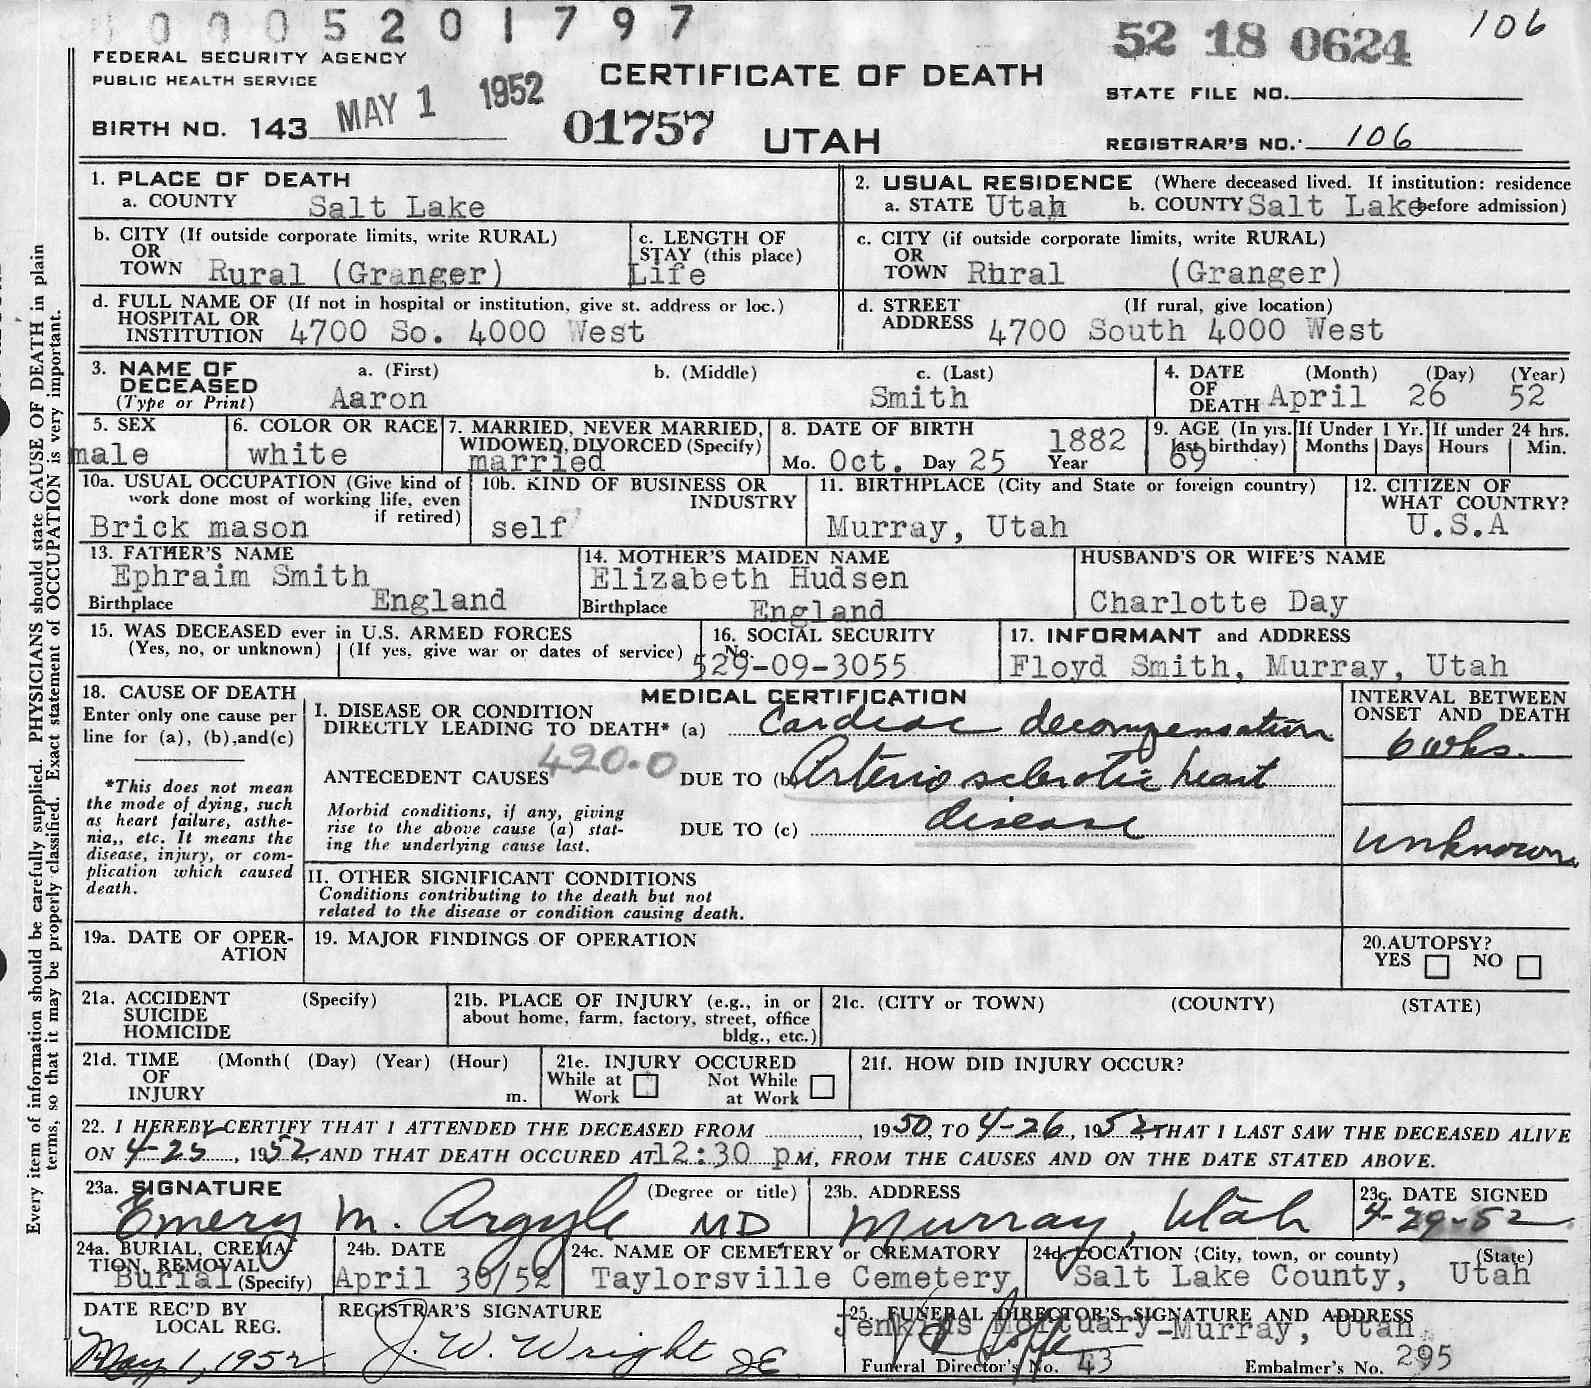 0005201797
52 18 0624
106
FEDERAL SECURITY AGENCY
PUBLIC HEALTH SERVICE
CERTIFICATE OF DEATH
STATE FILE NO.
BIRTH NO. 143 MAY 1 1952
01757 UTAH
REGISTRAR'S NO. 106
1. PLACE OF DEATH
a. COUNTY Salt Lake
2. USUAL RESIDENCE (Where deceased lived. If institution: residence before admission)
a. STATE Utah b. COUNTY Salt Lake
b. CITY (If outside corporate limits, write RURAL)
OR
TOWN Rural (Granger)
c. LENGTH OF
STAY (this place)
Life
c. CITY (if outside corporate limits, write RURAL)
OR
TOWN Rhral (Granger)
d. FULL NAME OF (If not in hospital or institution, give st. address or loc.)
HOSPITAL OR
INSTITUTION 4700 So. 4000 West
d. STREET (If rural, give location)
ADDRESS 4700 South 4000 West
3. NAME OF
DECEASED
(Type or Print)
a. (First) b. (Middle) c. (Last)
Aaron Smith
4. DATE (Month) (Day) (Year)
OF
DEATH April 26 52
5. SEX
male
6. COLOR OR RACE
white
7. MARRIED, NEVER MARRIED,
WIDOWED, DIVORCED (Specify)
married
8. DATE OF BIRTH
Mo. Oct. Day 25 1882 Year
9. AGE (In yrs. last birthday)
69
If Under 1 Yr.
Months Days
If under 24 hrs.
Hours Min.
10a. USUAL OCCUPATION (Give kind of
work done most of working life, even
if retired)
Brick mason
10b. KIND OF BUSINESS OR
INDUSTRY
self
11. BIRTHPLACE (City and State or foreign country)
Murray, Utah
12. CITIZEN OF
WHAT COUNTRY?
U.S.A
13. FATHER'S NAME
Ephraim Smith
Birthplace England
14. MOTHER'S MAIDEN NAME
Elizabeth Hudsen
Birthplace England
HUSBAND'S OR WIFE'S NAME
Charlotte Day
15. WAS DECEASED ever in U.S. ARMED FORCES
(Yes, no, or unknown) (If yes, give war or dates of service)
16. SOCIAL SECURITY
No.
529-09-3055
17. INFORMANT and ADDRESS
Floyd Smith, Murray, Utah
18. CAUSE OF DEATH
Enter only one cause per
line for (a), (b), and(c)
*This does not mean
the mode of dying, such
as heart failure, asthe-
nia,, etc. It means the
disease, injury, or com-
plication which caused
death.
MEDICAL CERTIFICATION
I. DISEASE OR CONDITION
DIRECTLY LEADING TO DEATH* (a) Cardiac decompensation
420.0
ANTECEDENT CAUSES DUE TO (b) Arterio sclerotic heart
Morbid conditions, if any, giving
rise to the above cause (a) stat-
ing the underlying cause last.
DUE TO (c) disease
INTERVAL BETWEEN
ONSET AND DEATH
6 wks.
unknown
II. OTHER SIGNIFICANT CONDITIONS
Conditions contributing to the death but not
related to the disease or condition causing death.
19a. DATE OF OPER-
ATION
19. MAJOR FINDINGS OF OPERATION
20. AUTOPSY?
YES NO
21a. ACCIDENT (Specify)
SUICIDE
HOMICIDE
21b. PLACE OF INJURY (e.g., in or
about home, farm, factory, street, office
bldg., etc.)
21c. (CITY or TOWN) (COUNTY) (STATE)
21d. TIME (Month( (Day) (Year) (Hour)
OF
INJURY m.
21e. INJURY OCCURED
While at Work Not While at Work
21f. HOW DID INJURY OCCUR?
22. I HEREBY CERTIFY THAT I ATTENDED THE DECEASED FROM , 1950, TO 4-26, 1952, THAT I LAST SAW THE DECEASED ALIVE
ON 4-25, 1952, AND THAT DEATH OCCURED AT 12:30 P.M, FROM THE CAUSES AND ON THE DATE STATED ABOVE.
23a. SIGNATURE (Degree or title)
Emery M. Argyle MD
23b. ADDRESS
Murray, Utah
23c. DATE SIGNED
4-29-52
24a. BURIAL, CREMA-
TION, REMOVAL
Burial (Specify)
24b. DATE
April 30/52
24c. NAME OF CEMETERY or CREMATORY
Taylorsville Cemetery
24d. LOCATION (City, town, or county) (State)
Salt Lake County, Utah
DATE REC'D BY
LOCAL REG.
May 1, 1952
REGISTRAR'S SIGNATURE
J. W. Wright
25. FUNERAL DIRECTOR'S SIGNATURE AND ADDRESS
Jenkins Mortuary-Murray, Utah
Funeral Director's No. 43 Embalmer's No. 295
Every item of information should be carefully supplied. PHYSICIANS should state CAUSE OF DEATH in plain
terms, so that it may be properly classified. Exact statement of OCCUPATION is very important.